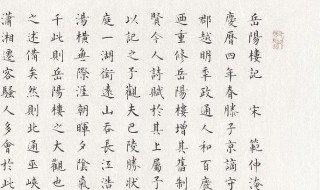 岳陽樓記 宋 範仲淹
慶曆四年春滕子京謫守
郡越明秊政通人和百廢
廼重修岳陽樓增其舊制
賢今人詩賦於其上屬予
以記之予觀夫巴陵勝狀
庭一湖銜遠山吞長江浩
湯橫無際涯朝暉夕陰氣
千此則岳陽樓之大觀也
之述備矣然則北通巫峽
瀟湘遷客騷人多會於此